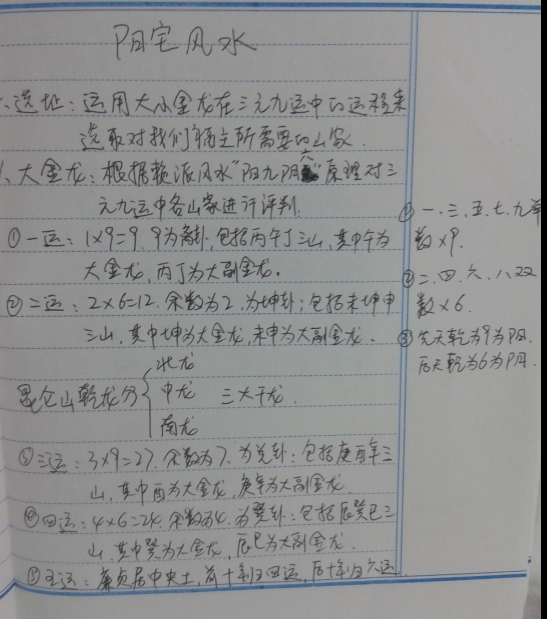 阳宅风水
一、选址：运用大小金龙在三元九运中的运程来
选取对我们福主所需要的山家.
1、大金龙：根据赖派风水"阳九阴六"原理对三
元九运中各山家进行评判.
①一运：1×9=9. 9为离卦，包括丙午丁三山，其中午为
大金龙，丙丁为大副金龙。
②二运：2×6=12. 余数为2. 为坤卦；包括未坤申
三山，其中坤为大金龙，未申为大副金龙.
北龙
昆仑山乾龙分 中龙 三大干龙.
南龙
③三运：3×9=27. 余数为7. 为兑卦：包括庚酉辛三
山，其中酉为大金龙，庚辛为大副金龙.
④四运：4×6=24. 余数为4. 为巽卦：包括辰巽巳三
山，其中巽为大金龙，辰巳为大副金龙.
⑤五运：廉贞居中央土，前十年归四运，后十年归六运
①一.三.五.七.九单
数×9.
②二.四.六.八双
数×6.
③先天乾为9为阳.
后天乾为6为阴.